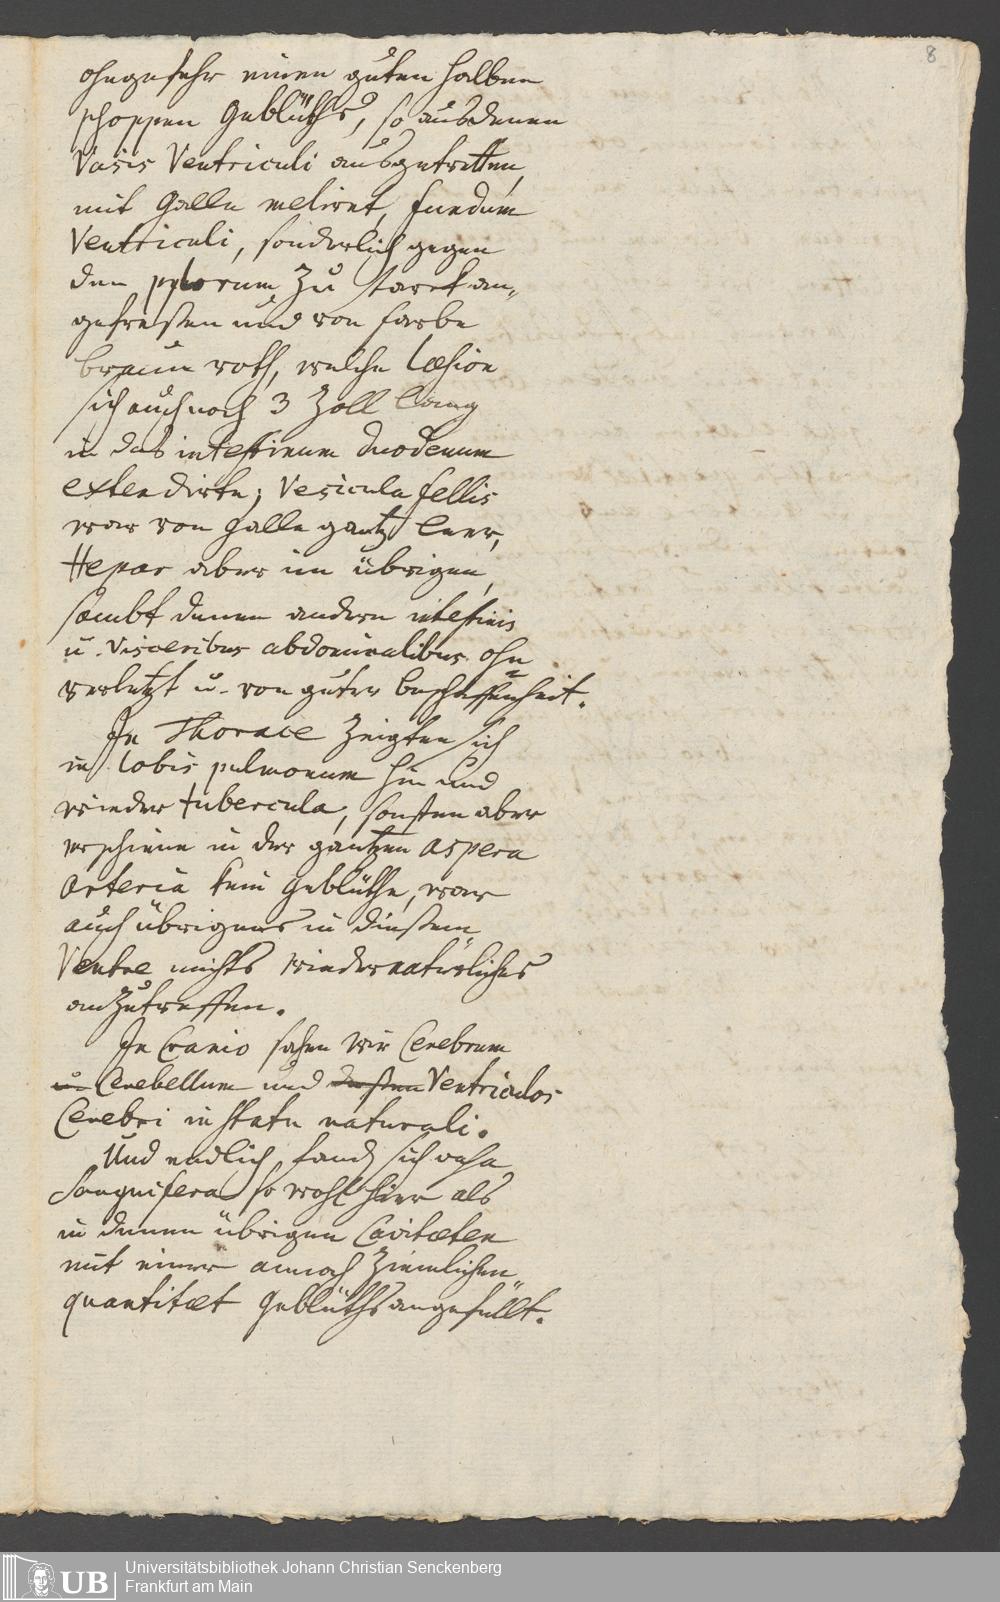 8
ohngefehr einen guten halben
schoppen Geblüths, so aus denen
Vasis Ventriculi ausgetretten,
mit Galle meliret, fundum
Ventriculi, sonderlich gegen
den pylorum zu starck an„
gefreßen und von farbe
braun roth, welche Læsion
sich auch noch 3 Zoll lang
in das intestinum duodenum
extendirte; Vesicula fellis
war von Galle gantz leer,
Hepar aber im übrigen,
sambt denen andern intestinis
u. visceribus abdominalibus ohn
verletzt u. von guter beschaffenheit.
In Thorace zeigten sich
in lobis pulmonum hin und
wieder tubercula, sonsten aber
erschiene in der gantzen aspera
arteria kein Geblüthe, war
auch übrigens in dießem
Ventre nichts wiedernatürliches
anzutreffen.
In Cranio sahen wir Cerebrum
u. Cerebellum und Ventriculos
Cerebri in statu naturali.
Und endlich fand sich vasa
Sanguifera so wohl hier als
in denen übrigen Cavitæten
mit einer annoch ziemlichen
quantitæt Geblüths angefüllt.
UB
Universitätsbibliothek Johann Christian Senckenberg
Frankfurt am Main